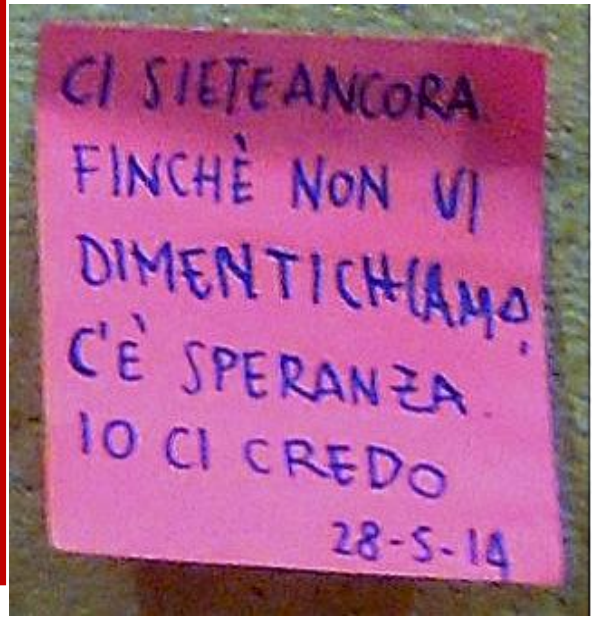 CI SIETE ANCORA.
FINCHÈ NON VI
DIMENTICHIAMO.
C'È SPERANZA.
IO CI CREDO
28-5-14